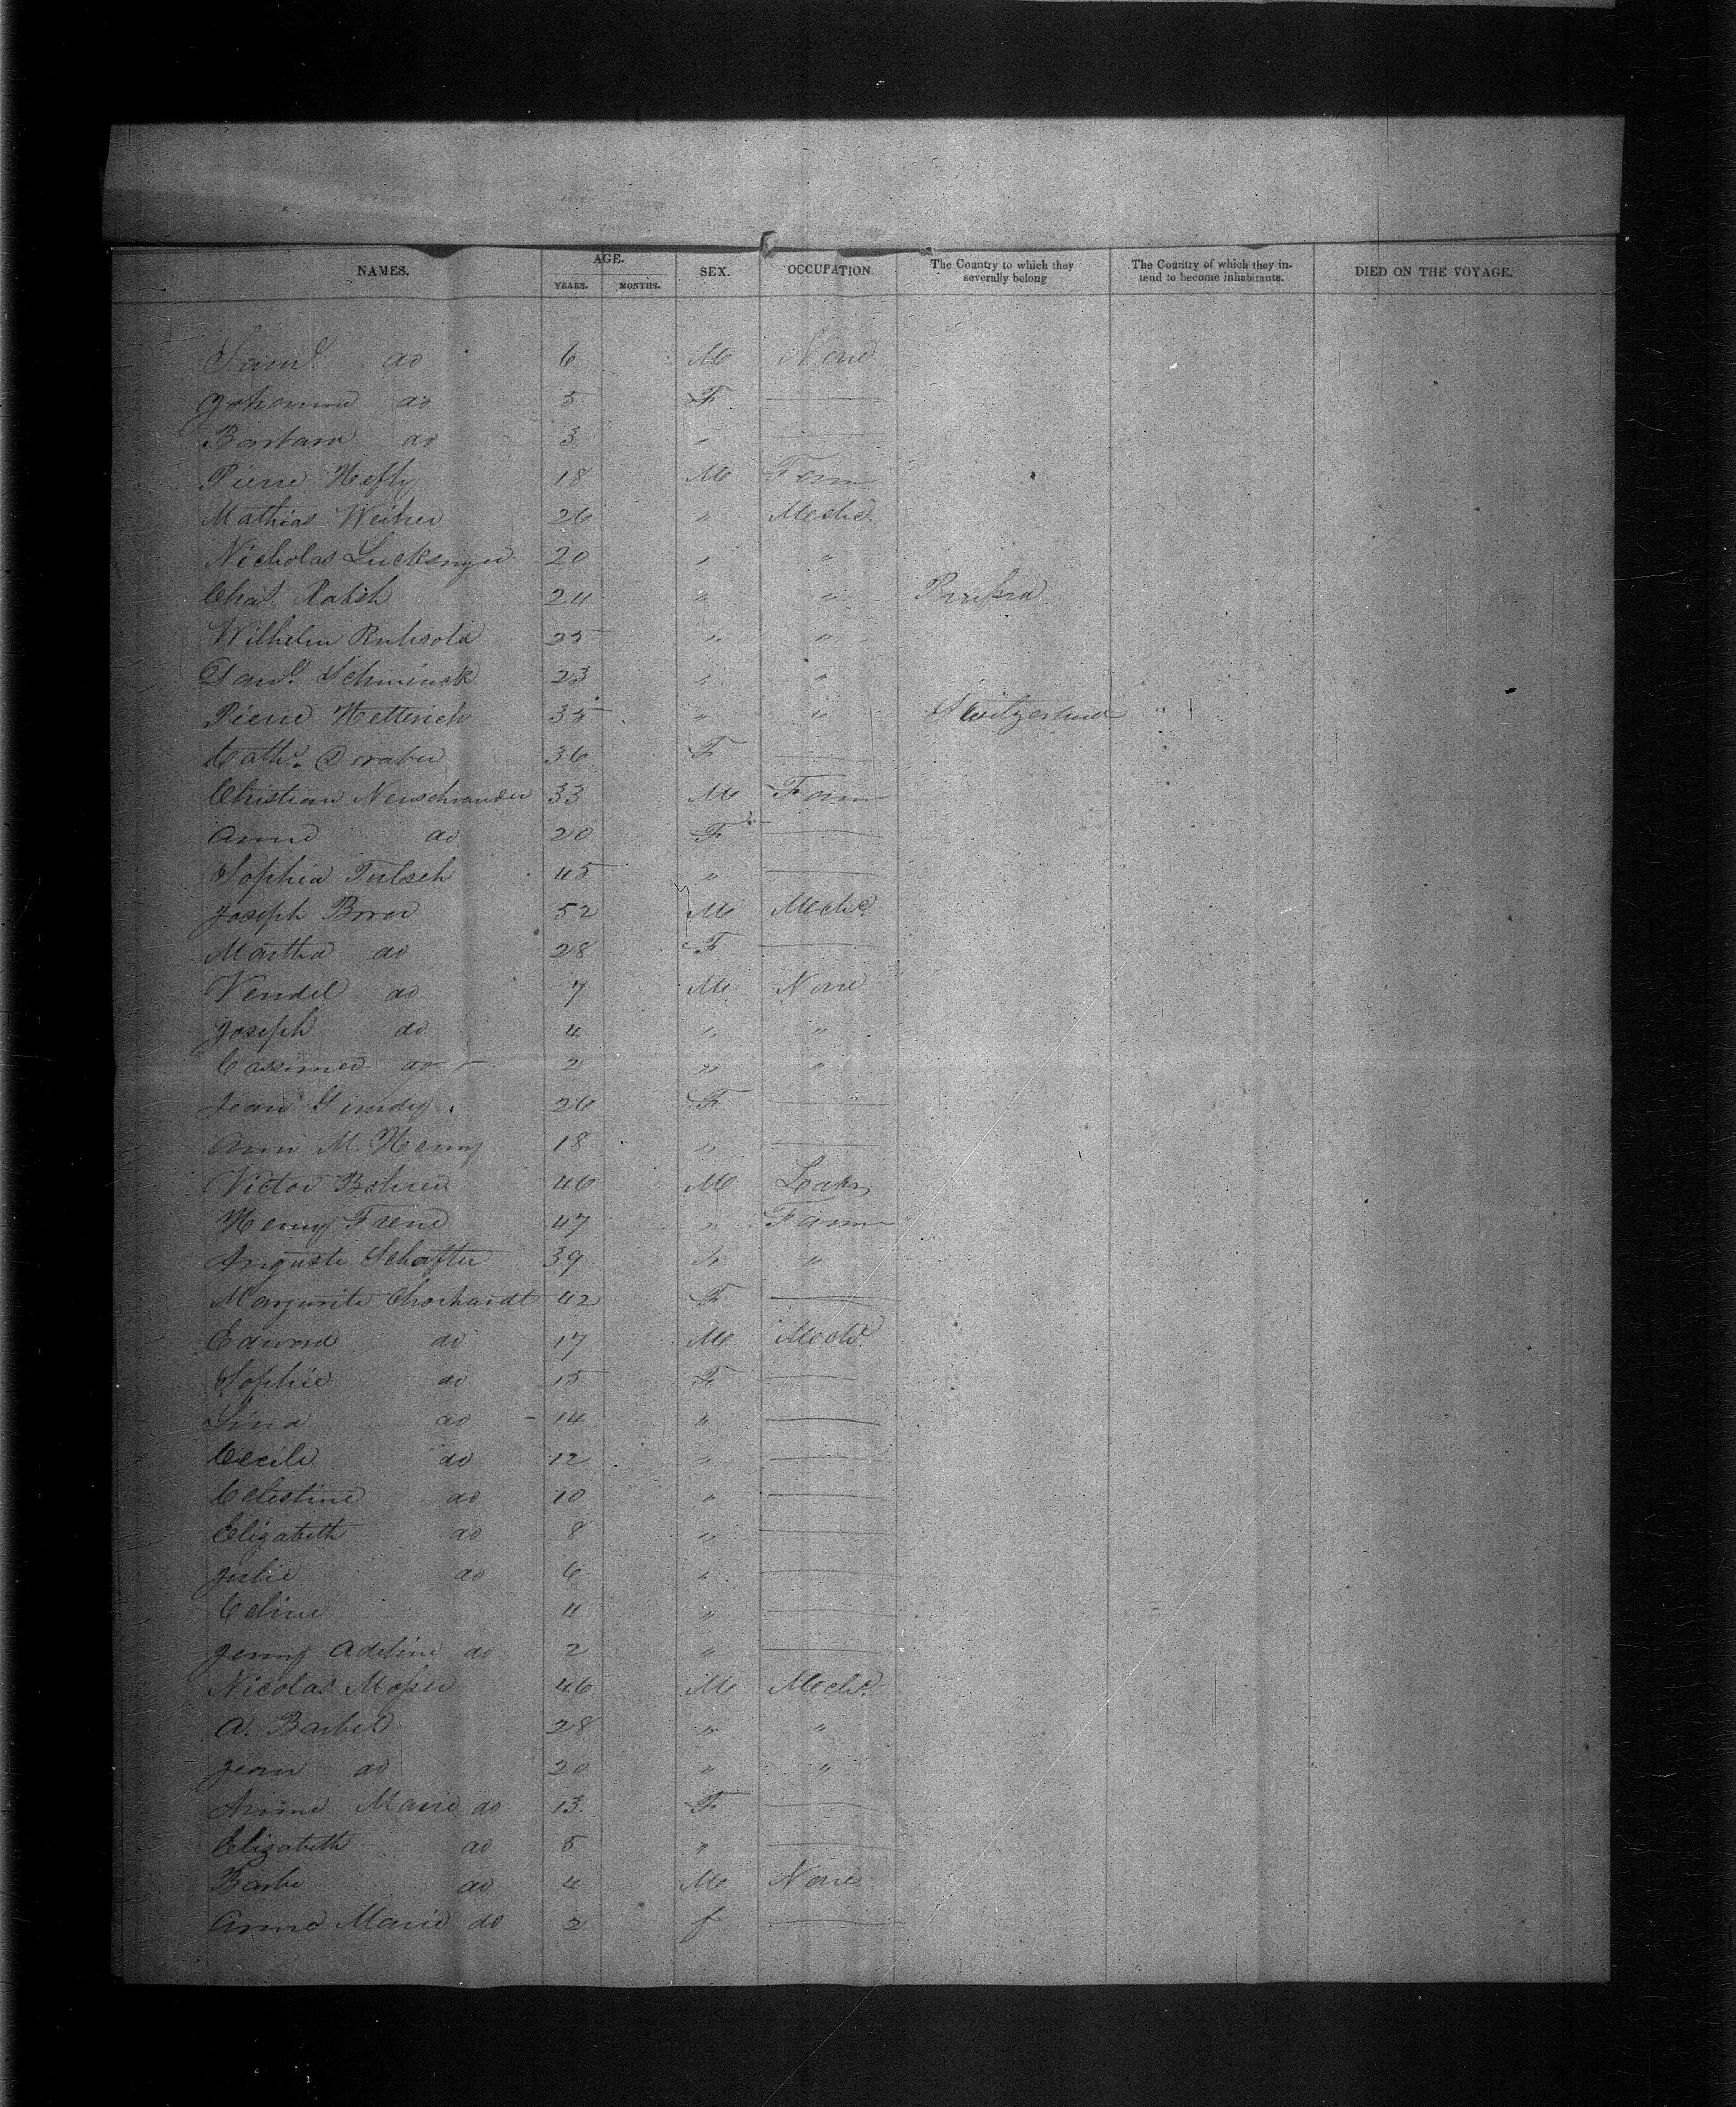 NAMES. AGE. YEARS. MONTHS. SEX. OCCUPATION. The Country to which they severally belong The Country of which they intend to become inhabitants. DIED ON THE VOYAGE.
Saml. do 6 M None
Johanna do 5 F —
Barbara do 3 " —
Pierre Hefty 18 M Farm
Mathias Weiher 26 " Mechc.
Nicholas Lucksinger 20 " "
Chas. Rabish 24 " " Prussia
Wilhelm Ruhsold 25 " "
Danl. Schminck 23 " "
Pierre Hetterich 35 " " Switzerland
Cath. 36 F —
Christian Neuschwander 33 M Farm
Anne do 20 F —
Sophia Tulsch 45 " —
Joseph Borer 52 M Mechc.
Martha do 28 F —
Vendel do 7 M None
Joseph do 4 " "
Cassimer do 2 " "
Jean Gundy 26 F —
Ann M. Henny 18 " —
Victor Bohrer 46 M
Henry Frene 47 " Farm
Auguste Schaffter 39 " "
Margurite 42 F —
Edward do 17 M Mechc.
Sophie do 15 F —
Lina do 14 " —
Cecile do 12 " —
Celestine do 10 " —
Elizabeth do 8 " —
Julie do 6 " —
Celine 4 " —
Jenny Adeline do 2 " —
Nicolas Moser 46 M Mechc.
A. Baibel 28 " "
Jean do 20 " "
Anne Marie do 13 F —
Elizabeth do 5 " —
Barbe do 4 M None
Anna Marie do 2 f —